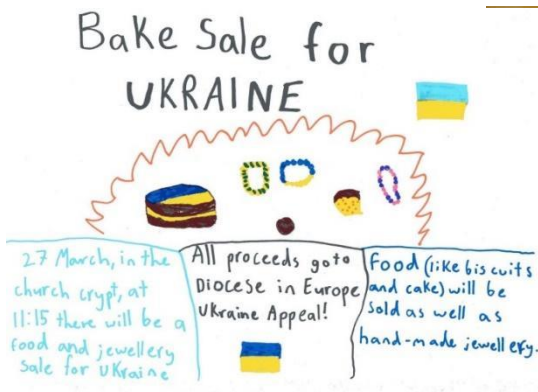 Bake Sale for
UKRAINE
27 March, in the
church crypt, at
11:15 there will be a
food and jewellery
sale for Ukraine
All proceeds go to
Diocese in Europe
Ukraine Appeal!
Food (like biscuits
and cake) will be
sold as well as
hand-made jewellery.